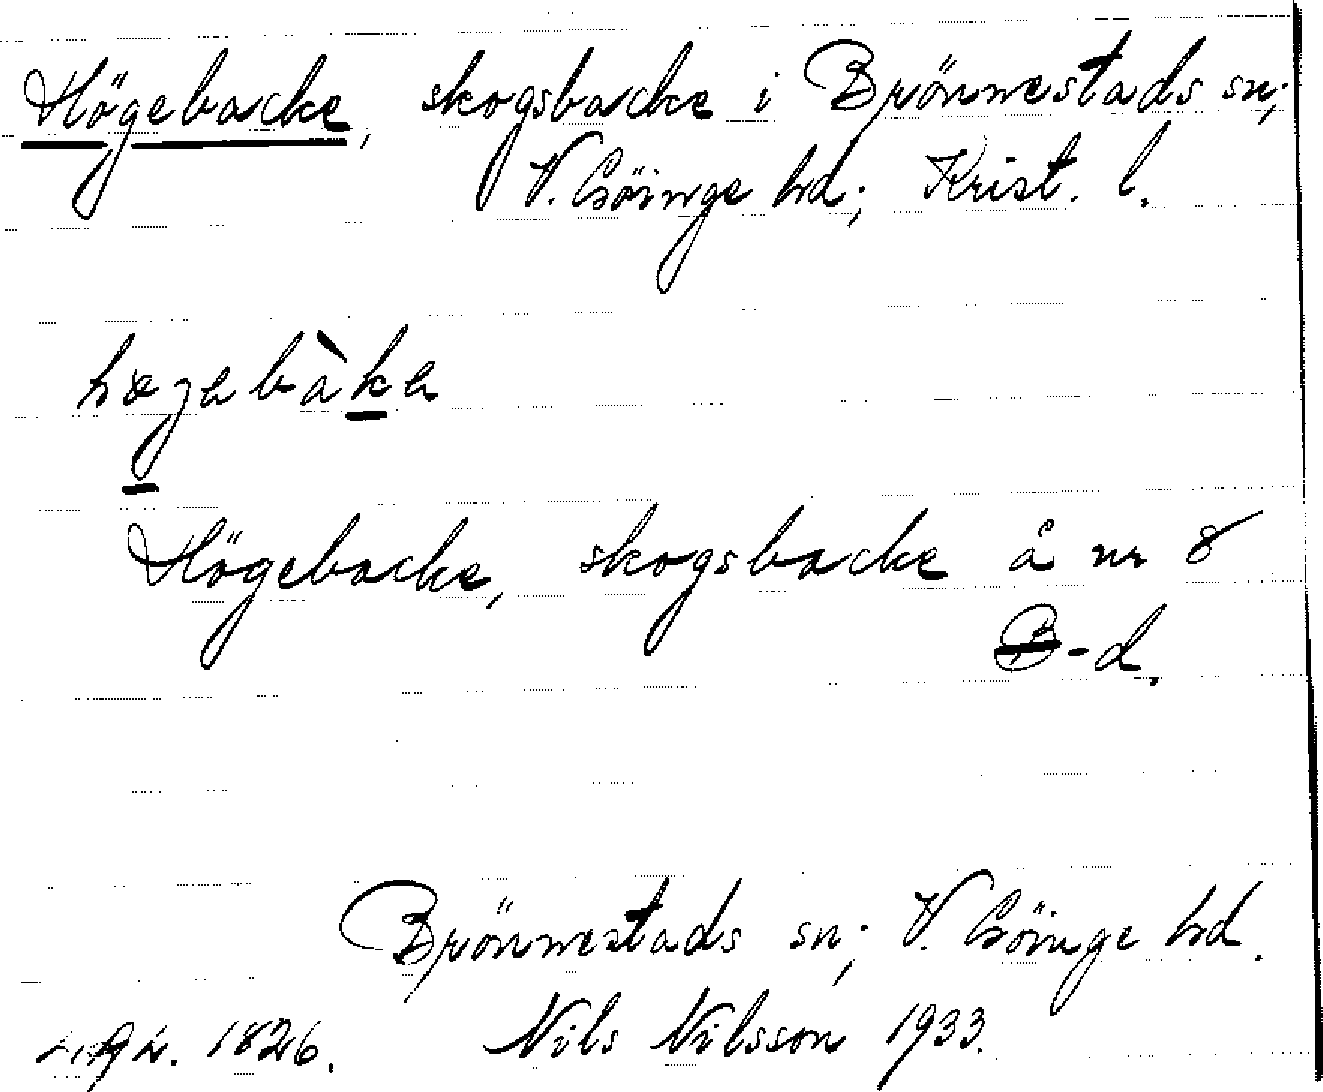 Högebacke, skogsbacke i Brönnestads sn;
V. Göinge hd; Krist. l.
Högebacke, skogsbacke å nr 8
B-d.
Brönnestads sn; V. Göinge hd.
1826. Nils Nilsson 1933.